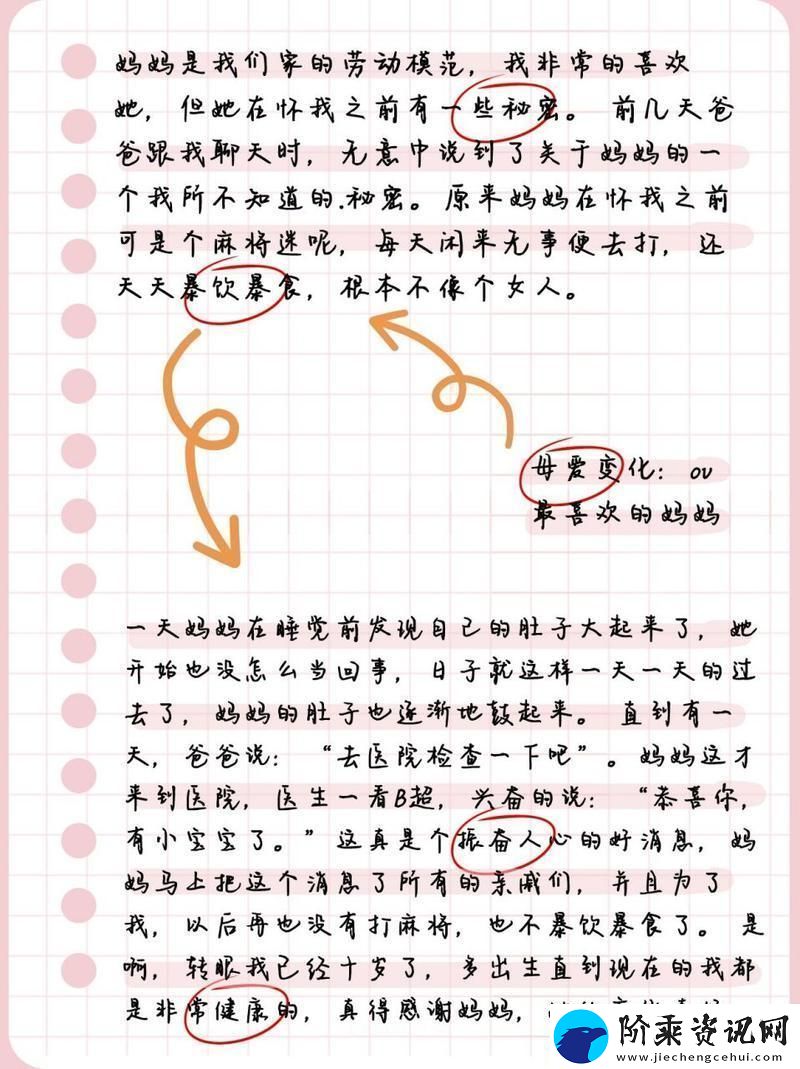 妈妈是我们家的劳动模范，我非常的喜欢
她，但她在怀我之前有一些秘密。前几天爸
爸跟我聊天时，无意中说到了关于妈妈的一
个我所不知道的.秘密。原来妈妈在怀我之前
可是个麻将迷呢，每天闲来无事便去打，还
天天暴饮暴食，根本不像个女人。
母爱变化：ov
最喜欢的妈妈
一天妈妈在睡觉前发现自己的肚子大起来了，她
开始也没怎么当回事，日子就这样一天一天的过
去了，妈妈的肚子也逐渐地鼓起来。直到有一
天，爸爸说：“去医院检查一下吧”。妈妈这才
来到医院，医生一看B超，兴奋的说：“恭喜你，
有小宝宝了。”这真是个振奋人心的好消息，妈
妈马上把这个消息了所有的亲戚们，并且为了
我，以后再也没有打麻将，也不暴饮暴食了。是
啊，转眼我已经十岁了，多出生直到现在的我都
是非常健康的，真得感谢妈妈，
阶乘资讯网
www.jiechengcehui.com